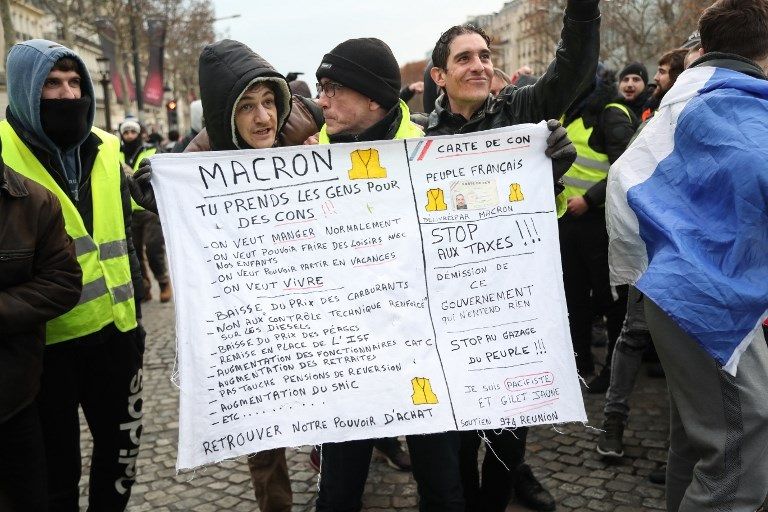 MACRON
TU PRENDS LES GENS POUR
DES CONS !!!
- ON VEUT MANGER NORMALEMENT
- ON VEUT POUVOIR FAIRE DES LOISIRS AVEC
NOS ENFANTS
- ON VEUT POUVOIR PARTIR EN VACANCES
- ON VEUT VIVRE
- BAISSE DU PRIX DES CARBURANTS
- NON AUX CONTRÔLE TECHNIQUE RENFORCÉ
SUR LES DIESELS
- BAISSE DU PRIX DES PÉAGES
- REMISE EN PLACE DE L'ISF
- AUGMENTATION DES FONCTIONNAIRES CAT C
- AUGMENTATION DES RETRAITES
- PAS TOUCHE PENSIONS DE REVERSION
- AUGMENTATION DU SMIC
- ETC..........
RETROUVER NOTRE POUVOIR D'ACHAT
CARTE DE CON
PEUPLE FRANÇAIS
DÉLIVRÉ PAR MACRON
STOP
AUX TAXES !!!
DEMISSION DE
CE
GOUVERNEMENT
QUI N'ENTEND RIEN
STOP AU GAZAGE
DU PEUPLE !!!
JE SUIS PACIFISTE
ET GILET JAUNE
SOUTIEN 974 REUNION
adidas